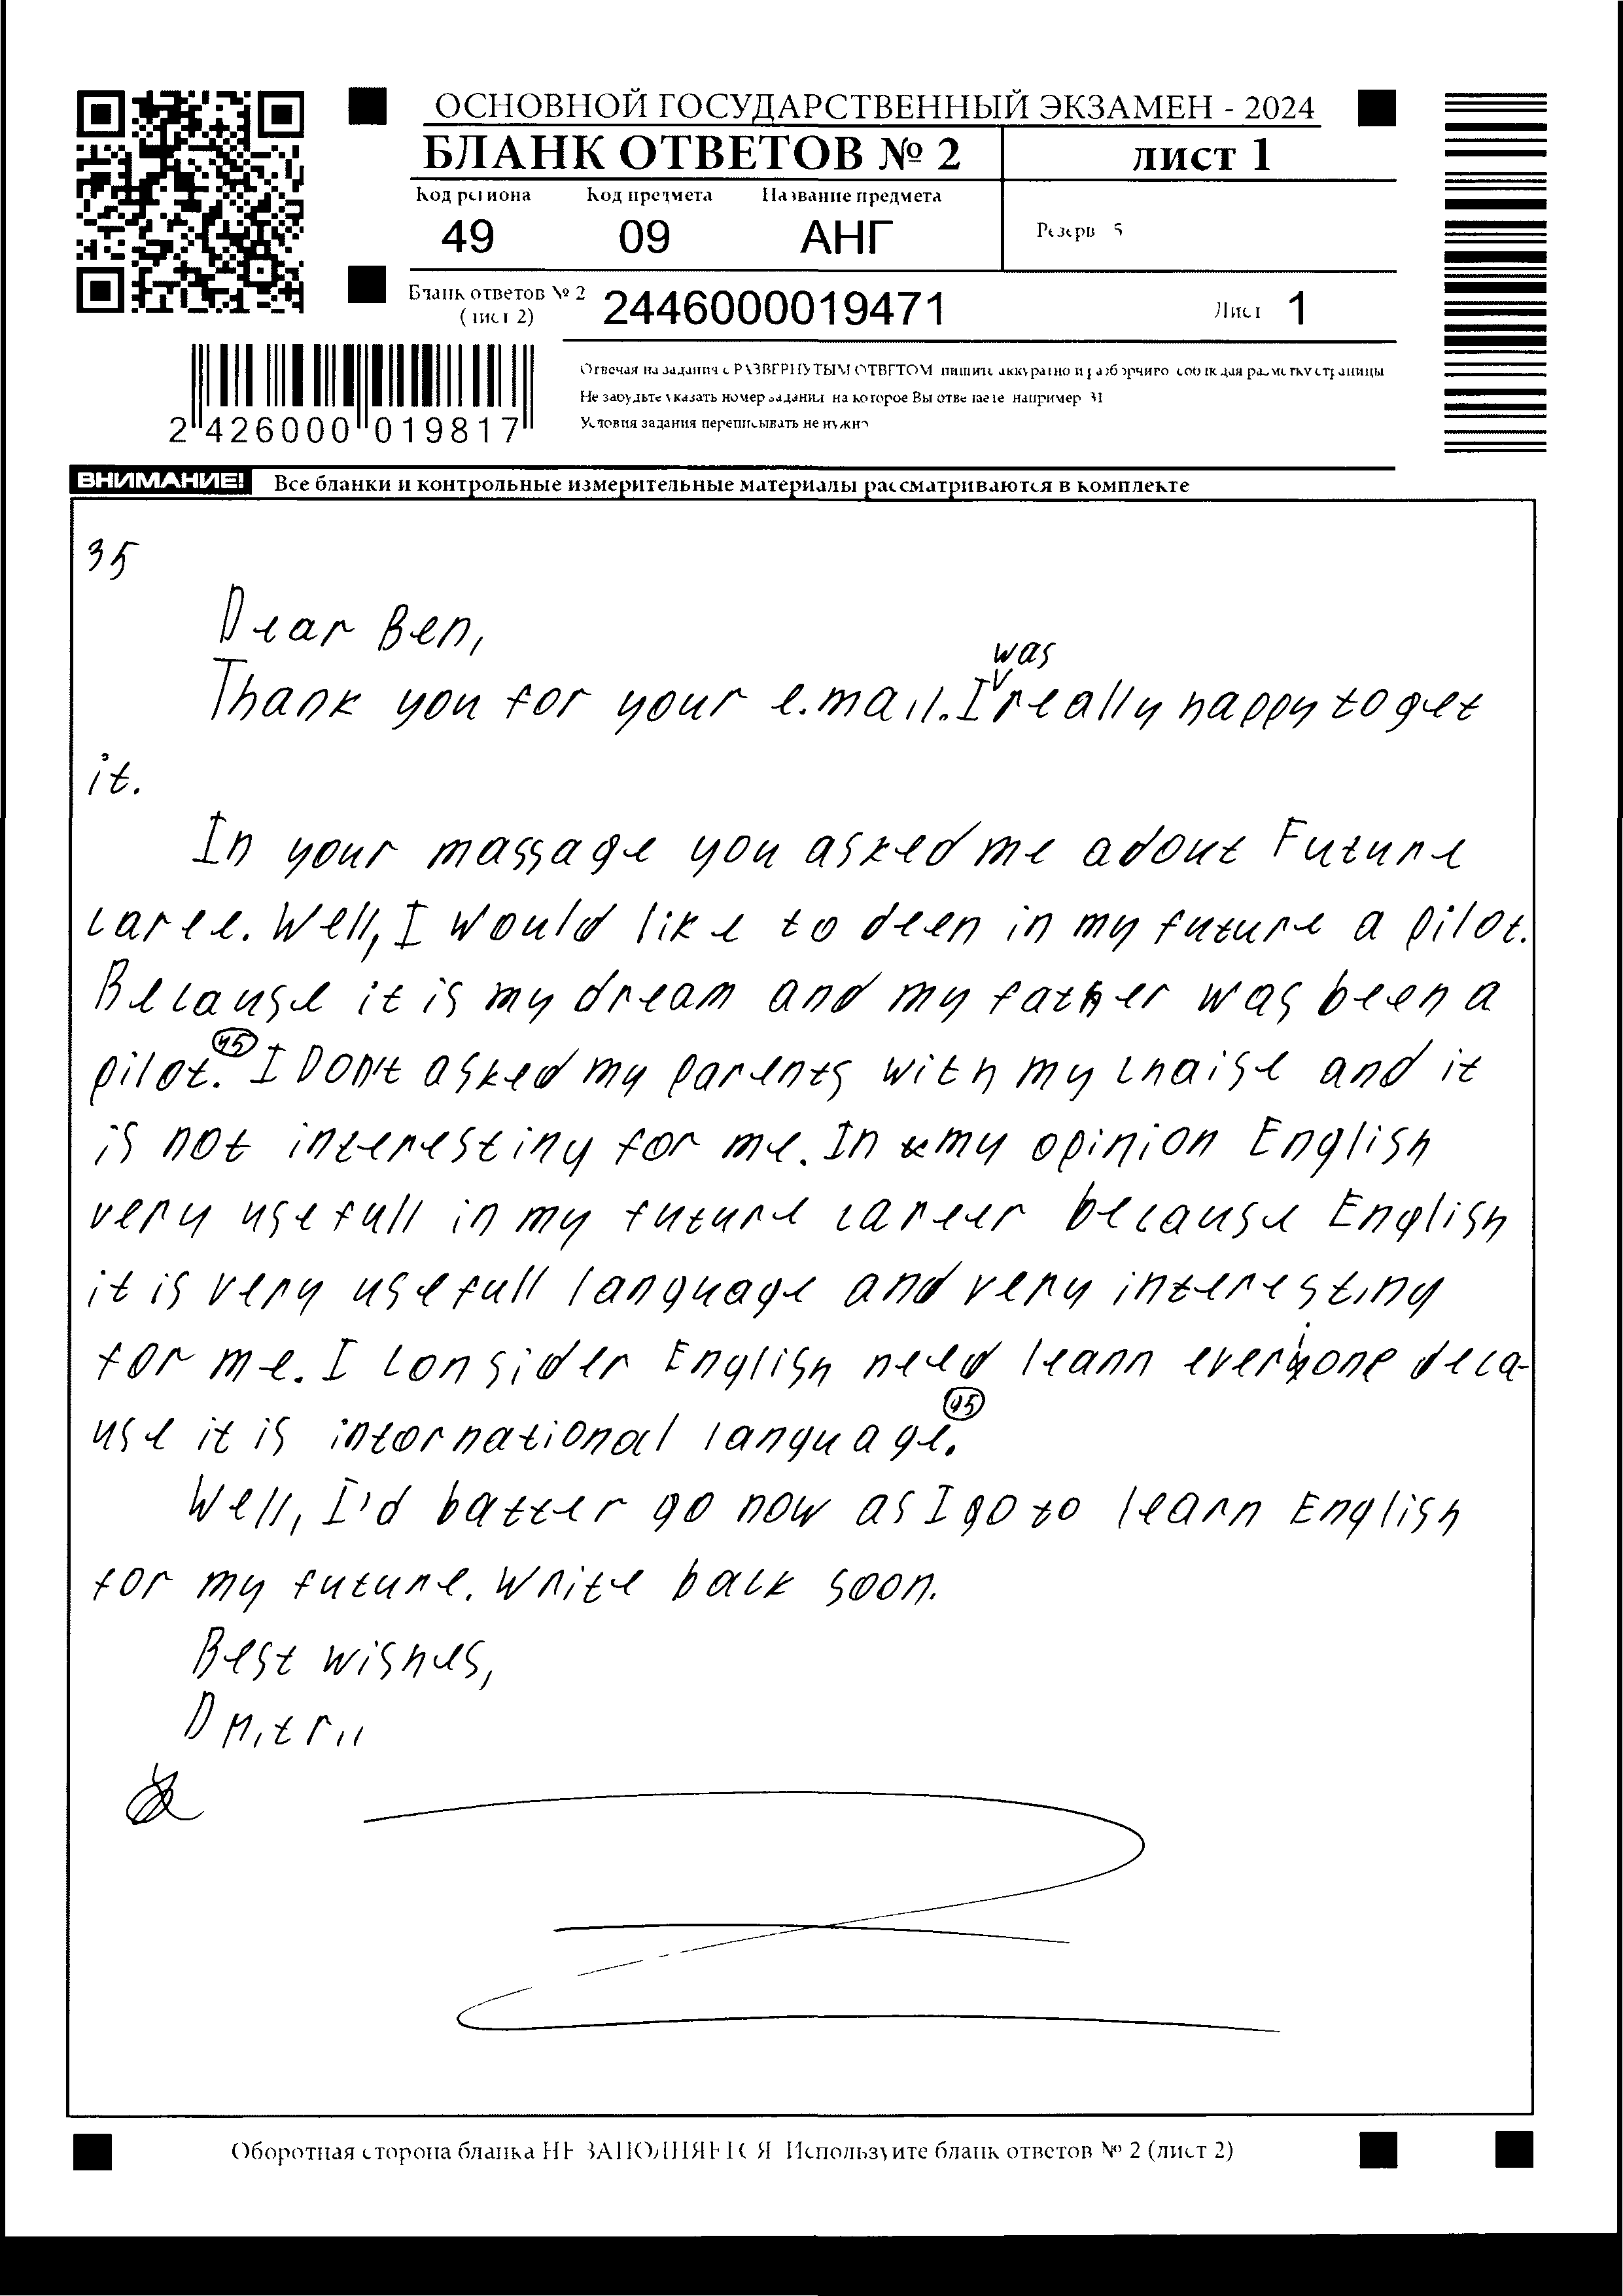 ОСНОВНОЙ ГОСУДАРСТВЕННЫЙ ЭКЗАМЕН - 2024
БЛАНК ОТВЕТОВ № 2 лист 1
Код региона Код предмета Название предмета
49 09 АНГ Резерв 5
Бланк ответов № 2 (лист 2) 2446000019471 Лист 1
Отвечая на задания с РАЗВЕРНУТЫМ ОТВЕТОМ пишите аккуратно и разборчиво соблюдая разметку страницы
Не забудьте указать номер задания на которое Вы отвечаете например 31
Условия задания переписывать не нужно
2 426000 019817
ВНИМАНИЕ! Все бланки и контрольные измерительные материалы рассматриваются в комплекте
35
Dear Ben,
Thank you for your e.mail. I was really happy to get
it.
In your massage you asked me adout Future
caree. Well, I would like to deen in my future a pilot.
Because it is my dream and my father was been a
pilot. 45 I Don't asked my parents with my chaise and it
is not interesting for me. In my opinion English
very usefull in my future career because English
it is very usefull language and very interesting
for me. I consider English need learn everione deca-
use it is intornational language. 95
Well, I'd batter go now as I go to learn English
for my future. Write back soon.
Best wishes,
Dmitrii
Оборотная сторона бланка НЕ ЗАПОЛНЯЕТСЯ Используйте бланк ответов № 2 (лист 2)